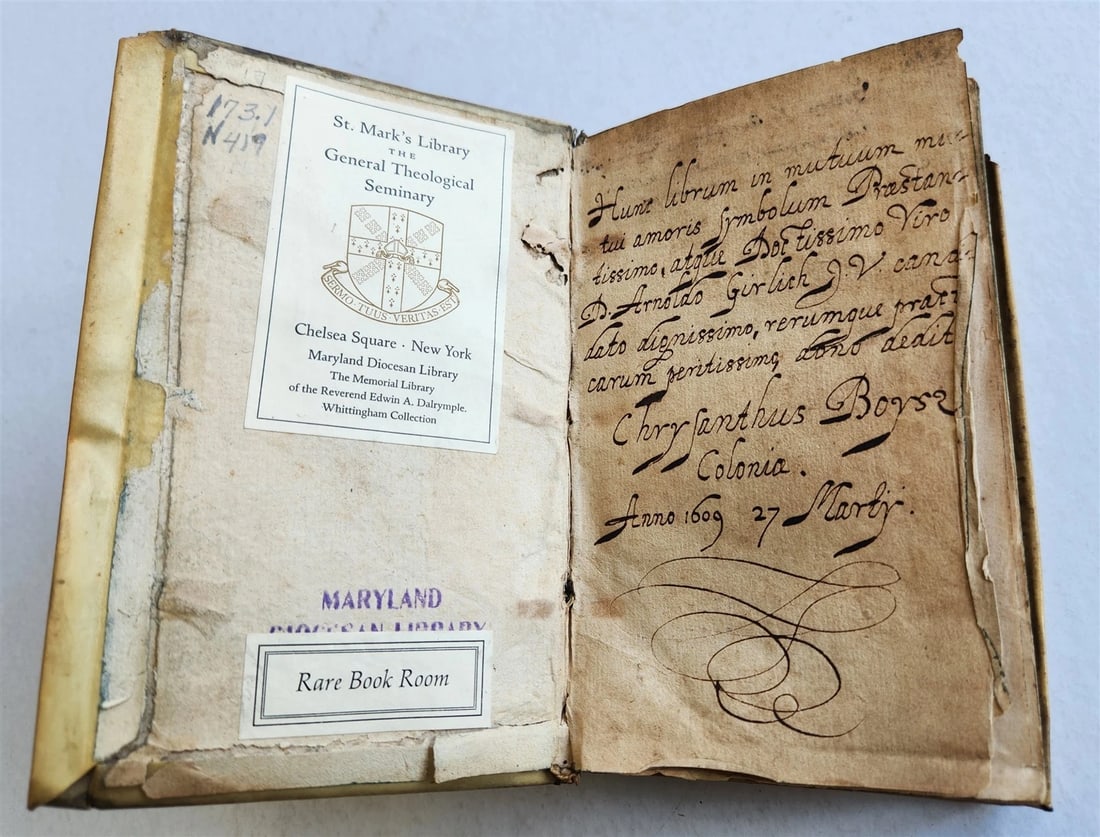 173.1
N459
St. Mark's Library
THE
General Theological
Seminary
SERMO · TUUS · VERITAS · EST
Chelsea Square · New York
Maryland Diocesan Library
The Memorial Library
of the Reverend Edwin A. Dalrymple.
Whittingham Collection
MARYLAND
DIOCESAN LIBRARY
Rare Book Room
Hunc librum in mutuum mu-
tui amoris symbolum Præstan-
tissimo, atque Doctissimo Viro
D. Arnoldo Girlich J. V. candi-
dato dignissimo, rerumque practi
carum peritissimo dono dedit
Chrysanthus Boysz
Colonia.
Anno 1609 27 Martij.